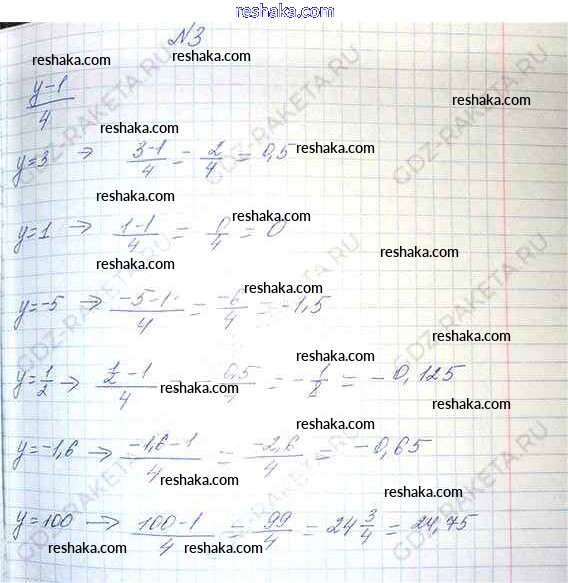 reshaka.com
№3
reshaka.com reshaka.com
(y-1)/4
reshaka.com reshaka.com
reshaka.com
y=3 → (3-1)/4 = 2/4 = 0,5
reshaka.com
reshaka.com
y=1 → (1-1)/4 = 0/4 = 0
reshaka.com reshaka.com
reshaka.com
reshaka.com
y=-5 → (-5-1)/4 = -6/4 = -1,5
reshaka.com
reshaka.com
y=1/2 → (1/2 -1)/4 = -0,5/4 = -1/8 = -0,125
reshaka.com reshaka.com
reshaka.com
y=-1,6 → (-1,6-1)/4 = -2,6/4 = -0,65
reshaka.com
reshaka.com
y=100 → (100-1)/4 = 99/4 = 24 3/4 = 24,75
reshaka.com reshaka.com reshaka.com
reshaka.com
GDZ-RAKETA.RU
GDZ-RAKETA.RU
GDZ-RAKETA.RU
GDZ-RAKETA.RU
GDZ-RAKETA.RU
GDZ-RAKETA.RU